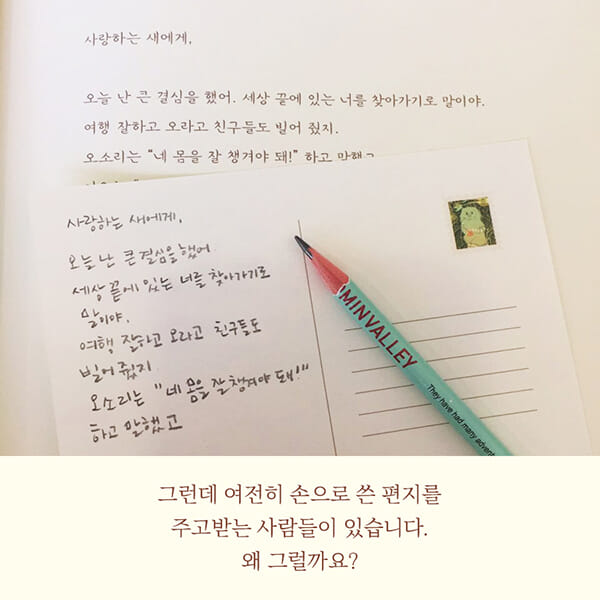 사랑하는 새에게,
오늘 난 큰 결심을 했어. 세상 끝에 있는 너를 찾아가기로 말이야.
여행 잘하고 오라고 친구들도 빌어 줬지.
오소리는 “네 몸을 잘 챙겨야 돼!” 하고 말했고
사랑하는 새에게,
오늘 난 큰 결심을 했어
세상 끝에 있는 너를 찾아가기로
말이야.
여행 잘하고 오라고 친구들도
빌어 줬지
오소리는 "네 몸을 잘 챙겨야 돼!"
하고 말했고
MINVALLEY
They have had many advent
그런데 여전히 손으로 쓴 편지를
주고받는 사람들이 있습니다.
왜 그럴까요?